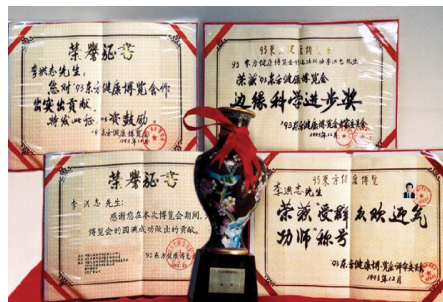 荣誉证书
李洪志先生：
您对'93东方健康博览会作
出突出贡献，
特发此证，以资鼓励。
'93东方健康博览会
1993年12月
'93东方健康博览会
荣获'93东方健康博览会
边缘科学进步奖
'93东方健康博览会评审委员会
1993年12月
荣誉证书
李洪志先生：
感谢您在本次博览会期间，
博览会的圆满成功做出的贡献。
'93东方健康博览会
'93东方健康博览
李洪志先生
荣获"受群众欢迎气
功师"称号
'93东方健康博览会评审委员会
1993年12月